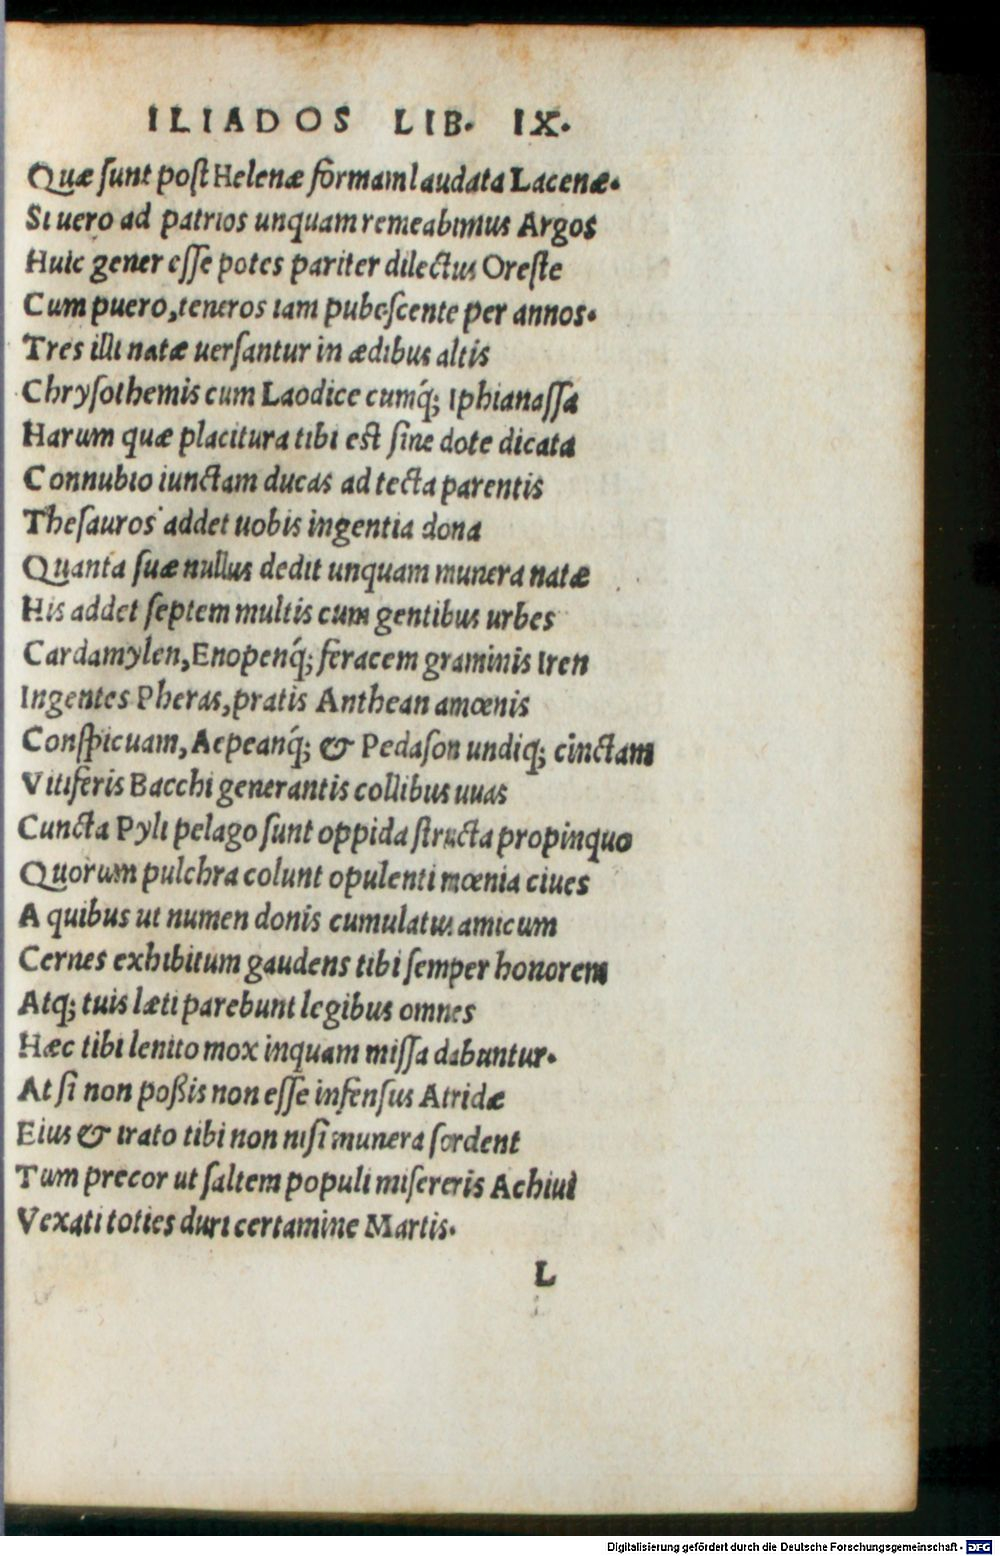 ILIADOS LIB. IX.
Quæ ſunt poſt Helenæ formam laudata Lacenæ.
Si uero ad patrios unquam remeabimus Argos
Huic gener eſſe potes pariter dilectus Oreſte
Cum puero, teneros iam pubeſcente per annos.
Tres illi natæ uerſantur in ædibus altis
Chryſothemis cum Laodice cumq́; Iphianaſſa
Harum quæ placitura tibi eſt ſine dote dicata
Connubio iunctam ducas ad tecta parentis
Theſauros addet uobis ingentia dona
Quanta ſuæ nullus dedit unquam munera natæ
His addet ſeptem multis cum gentibus urbes
Cardamylen, Enopenq́; feracem graminis Iren
Ingentes Pheras, pratis Anthean amœnis
Conſpicuam, Aepeanq́; & Pedaſon undiq; cinctam
Vitiferis Bacchi generantis collibus uuas
Cuncta Pyli pelago ſunt oppida ſtructa propinquo
Quorum pulchra colunt opulenti mœnia ciues
A quibus ut numen donis cumulatus amicum
Cernes exhibitum gaudens tibi ſemper honorem
Atq; tuis læti parebunt legibus omnes
Hæc tibi lenito mox inquam miſſa dabuntur.
At ſi non poßis non eſſe infenſus Atridæ
Eius & irato tibi non niſi munera ſordent
Tum precor ut ſaltem populi miſereris Achiui
Vexati toties duri certamine Martis.
L
Digitalisierung gefördert durch die Deutsche Forschungsgemeinschaft - DFG